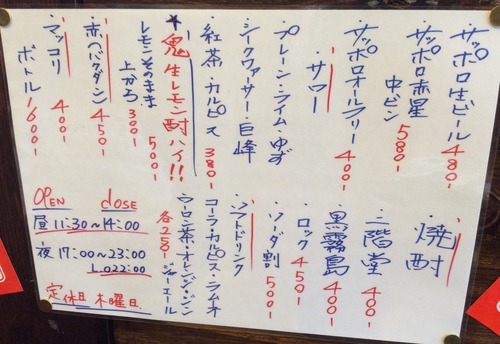 ・サッポロ生ビール 480-
・サッポロ赤星
中ビン 580-
・サッポロオールフリー 400-
・サワー
プレーン・ライム・ゆず
シークヮーサー・巨峰
紅茶・カルピス 380-
★鬼生レモン酎ハイ!!
レモンそのまま 500-
上から 300-
・赤(バクダン) 450-
・マッコリ 400-
ボトル 1600-
・焼酎
・二階堂 400-
・黒霧島 400-
・ロック 450-
・ソーダ割 500-
・ソフトドリンク
コーラ・カルピス・ラムネ
ウーロン茶・オレンジ・ジン
各250- ジャーエール
OPEN CLOSE
昼 11:30~14:00
夜 17:00~23:00
L.O 22:00
定休日 木曜日